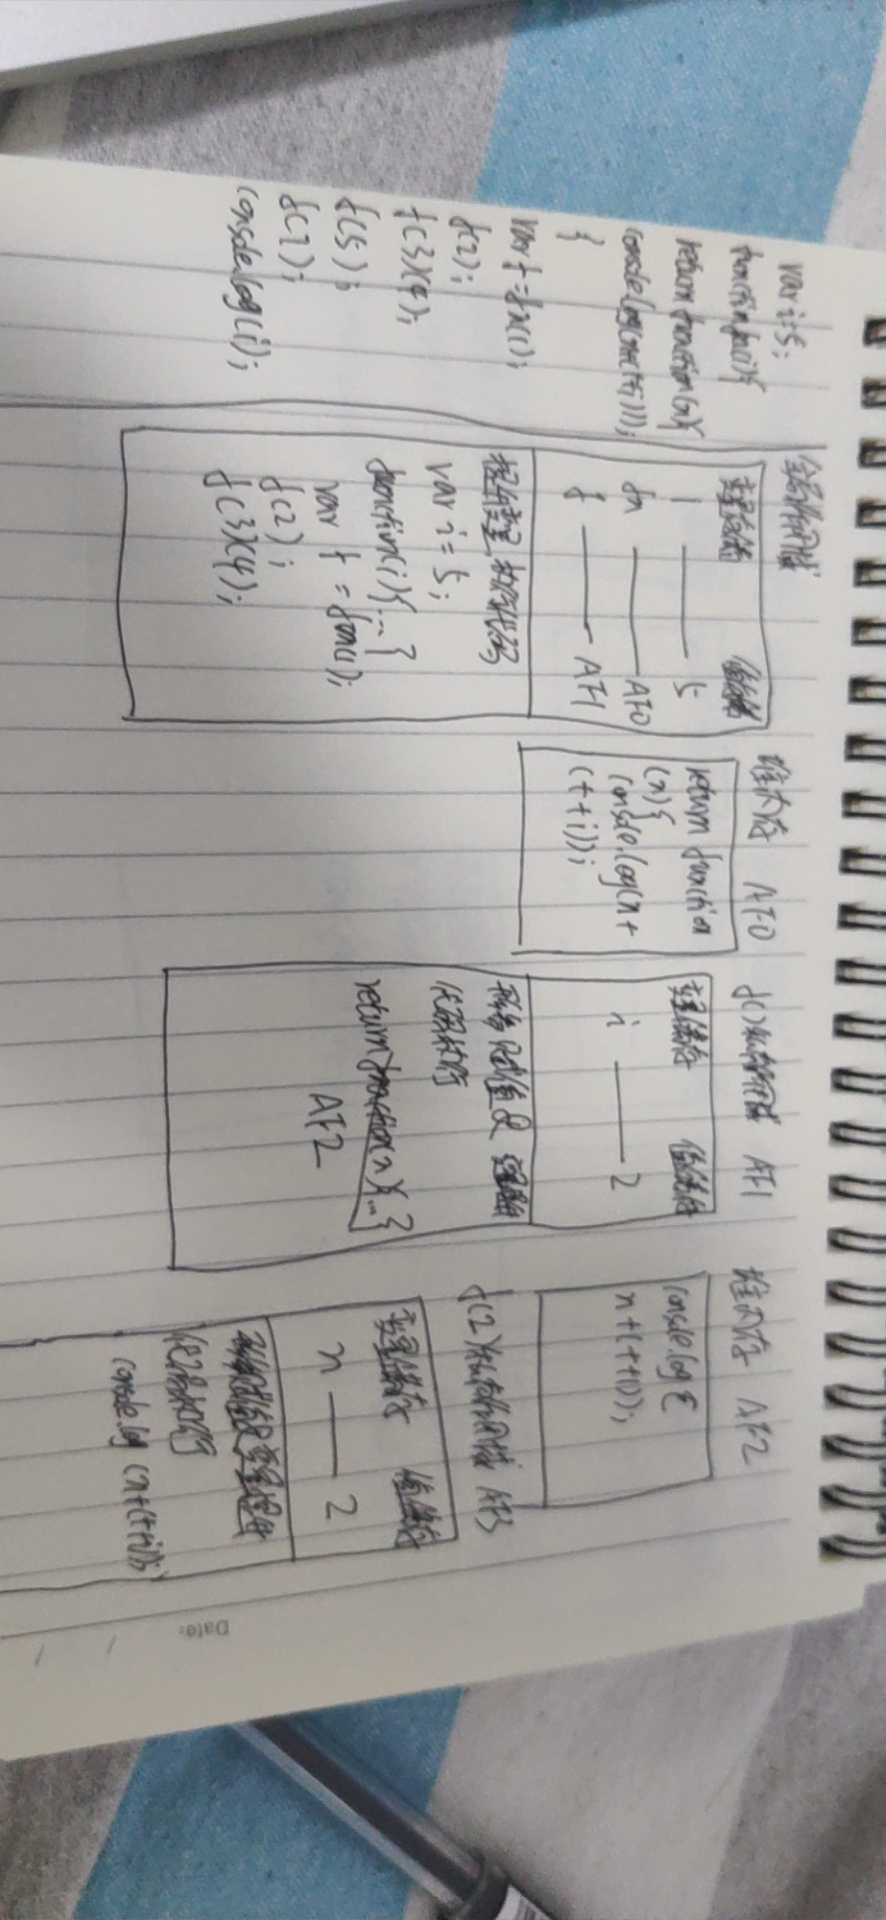 var i=5;
function fn(i){
return function(n){
console.log(n+(++i));
}
var f=fn(1);
f(2);
f(3)(4);
f(5);
f(7);
console.log(i);
全局作用域
变量储存 值储存
i 5
fn AF0
f AF1
提升变量 执行代码
var i=5;
function(i){...}
var f = fn(1);
f(2);
f(3)(4);
堆内存 AF0
return function
(n){
console.log(n+
(++i));
f()私有作用域 AF1
变量储存 值储存
i 2
形参赋值及变量提升
代码执行
return function(n){...}
AF2
堆内存 AF2
console.log(
n+(++i));
f(2)私有作用域 AF3
变量储存 值储存
n 2
形参赋值及变量提升
代码执行
console.log(n+(++i));
Date: